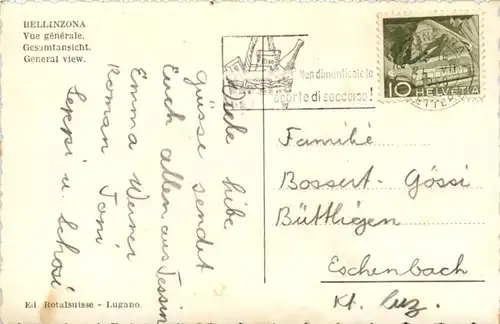 BELLINZONA
Vue générale.
Gesamtansicht.
General view.
Non dimenticate le
scorte di soccorso!
10 HELVETIA
Viele liebe
Grüsse sendet
Euch allen aus Tessin
Emma Werner
Roman Toni
Seppi u. Schosi
Familie
Bossert-Gössi
Büttligen
Eschenbach
Kt. Luz.
Ed. Rotalsuisse - Lugano.